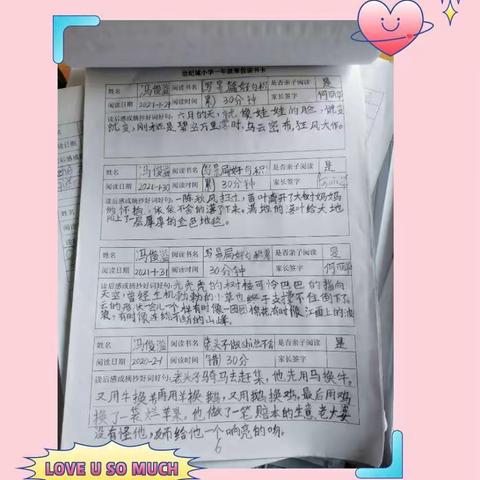 世纪城小学一年级寒假读书卡
姓名 冯俊溢 阅读书名 写景篇好句积累 是否亲子阅读 是
阅读日期 2021-1-29 阅读时间 30分钟 家长签字
读后感或摘抄好词好句: 六月的天,就像娃娃的脸,说变
就变,刚才还是望空万里,霎时,乌云密布,狂风大作。
姓名 冯俊溢 阅读书名 写景篇好句积累 是否亲子阅读 是
阅读日期 2021-1-30 阅读时间 30分钟 家长签字
读后感或摘抄好词好句: 一阵秋风扫过,首叶离开了大树妈妈
的怀抱,依依不舍的落了下来。满地的落叶给大地
上了一层厚厚的金色地毯。
姓名 冯俊溢 阅读书名 写景篇好句积累 是否亲子阅读 是
阅读日期 2021-1-31 阅读时间 30分钟 家长签字
读后感或摘抄好词好句: 光秃秃的树枝可怜巴巴的指向
天空,曾经生机勃勃的小草也终于支撑不住倒下了
云的形状一会儿一个样有时像一团团棉花有时像江面上的波
浪,有时像连绵不断的山峰。
姓名 冯俊溢 阅读书名 老头子做事总不会错 是否亲子阅读 是
阅读日期 2020-2-1 阅读时间 30分 家长签字
读后感或摘抄好词好句: 老头子骑马去赶集,他先用马换牛,
又用牛换羊再用羊换鹅,又用鹅换鸡,最后用鸡
换了一袋烂苹果,他做了一笔赔本的生意,老太婆
没有怪他,还给他一个响亮的吻。
6
LOVE U SO MUCH